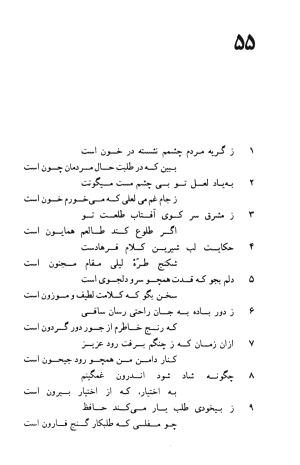 ۵۵
۱ ز گریه مردم چشمم نشسته در خون است
ببین که در طلبت حال مردمان چون است
۲ به‌یاد لعل تو بی چشم مست میگونت
ز جام غم می لعلی که می‌خورم خون است
۳ ز مشرق سر کوی آفتاب طلعت تو
اگر طلوع کند طالعم همایون است
۴ حکایت لب شیرین کلام فرهادست
شکنج طرّهٔ لیلی مقام مجنون است
۵ دلم بجو که قدت همچو سرو دلجوی است
سخن بگو که کلامت لطیف و موزون است
۶ ز دور باده به جان راحتی رسان ساقی
که رنج خاطرم از جور دور گردون است
۷ ازان زمان که ز چنگم برفت رود عزیز
کنار دامن من همچو رود جیحون است
۸ چگونه شاد شود اندرون غمگینم
به اختیار، که از اختیار بیرون است
۹ ز بیخودی طلب یار می‌کند حافظ
چو مفلسی که طلبکار گنج قارون است